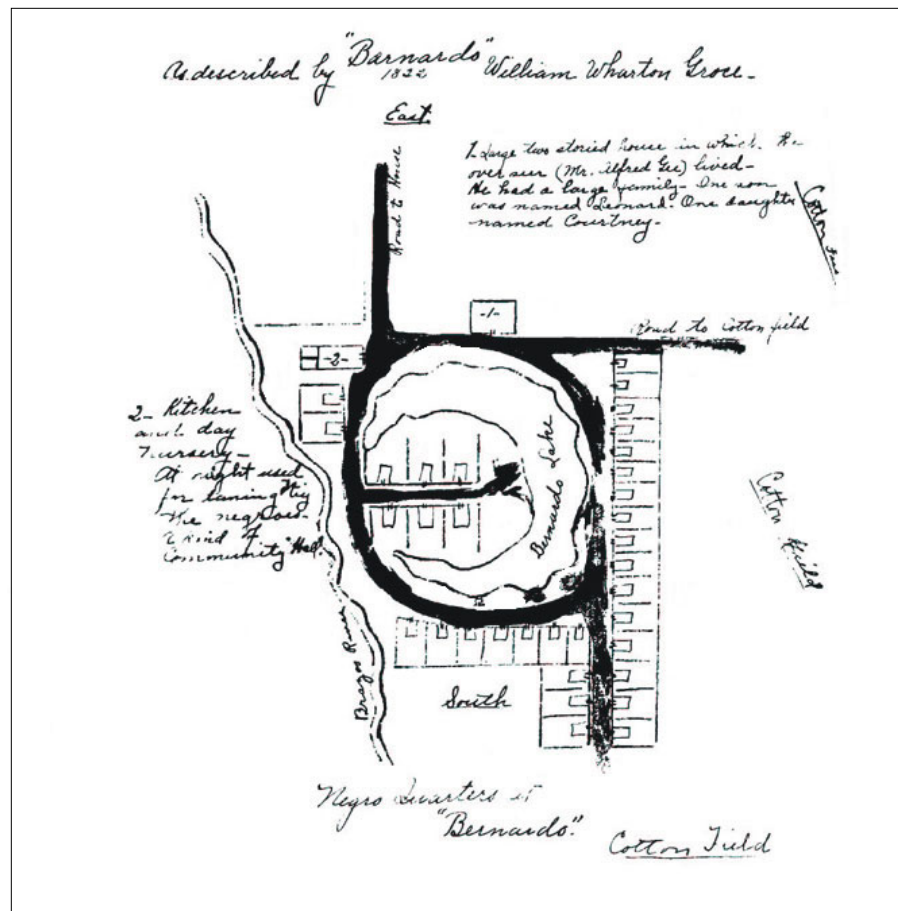 "Bernardo"
1822
As described by William Wharton Groce-
East.
1- Large two storied house in which the
over seer (Mr. Alfred Gee) lived-
He had a large family- One son
was named Leonard. One daughter
named Courtney-
Cotton
Road to House
-1-
Road to Cotton field
-2-
2- Kitchen
and day
nursery-
At night used
for by
the negroes-
a kind of
Community Hall.
Bernardo Lake
Cotton Field
Brazos River
South
Negro Quarters at
"Bernardo".
Cotton Field